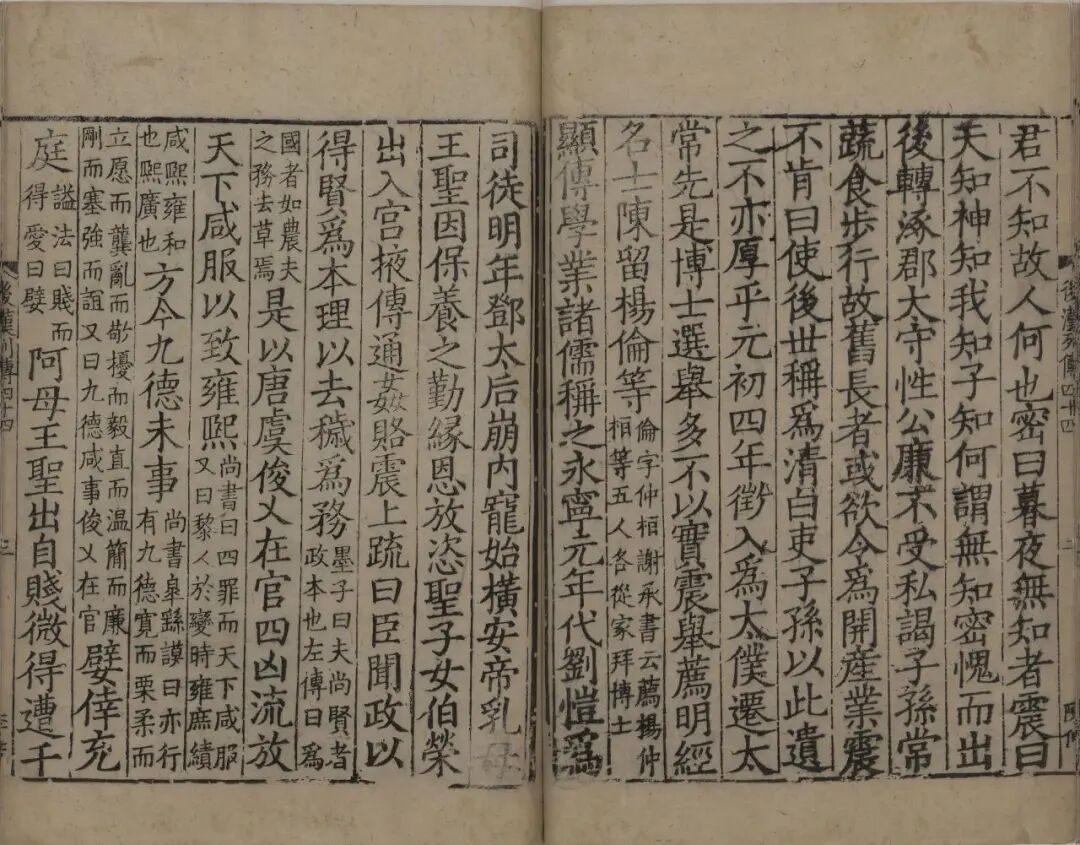 君不知故人何也密曰暮夜無知者震曰
天知神知我知子知何謂無知密愧而出
後轉涿郡太守性公廉不受私謁子孫常
蔬食步行故舊長者或欲令為開產業震
不肯曰使後世稱為清白吏子孫以此遺
之不亦厚乎元初四年徵入為太僕遷太
常先是博士選舉多不以實震舉薦明經
名士陳留楊倫等
倫字仲桓謝承書云薦楊仲
桓等五人各從家拜博士
顯傳學業諸儒稱之永寧元年代劉愷為
司徒明年鄧太后崩內寵始橫安帝乳母
王聖因保養之勤緣恩放恣聖子女伯榮
出入宮掖傳通姦賂震上疏曰臣聞政以
得賢為本理以去穢為務
墨子曰夫尚賢者
政本也左傳曰為
國者如農夫
之務去草焉
是以唐虞俊乂在官四凶流放
天下咸服以致雍熙
尚書曰四罪而天下咸服
又曰黎人於變時雍庶績
咸熙雍和
也熙廣也
方今九德未事
尚書皋繇謨曰亦行
有九德寬而栗柔而
立愿而龔亂而敬擾而毅直而溫簡而廉
剛而塞強而誼又曰九德咸事俊乂在官
嬖倖充
庭
謚法曰賤而
得愛曰嬖
阿母王聖出自賤微得遭千
後漢列傳四十四
三